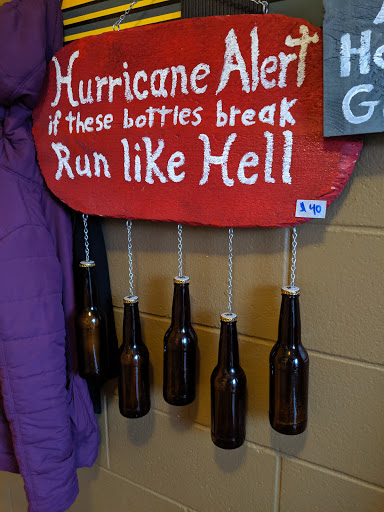 Hurricane Alert
if these bottles break
Run like Hell
$40